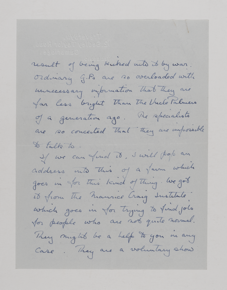 result of being kicked into it by worse.
Ordinary G.Ps are so overloaded with
unnecessary information that they are
far less bright than the Uncle
of a generation ago. As specialists
are so conceited that they are impossible
to talk to.
If we can find it, I will pop an
address into this of a firm which
goes in for this kind of thing. We got
it from the Craig Institute
which goes in for trying to find jobs
for people who are not quite normal.
They might be a help to you in any
case. They are a voluntary show